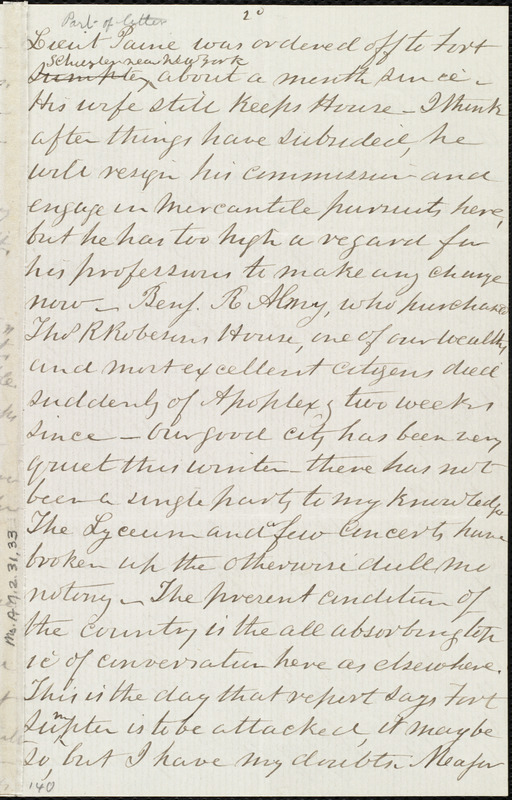 Part of Letter
2º
Lieut Paine was ordered off to Fort
Schuyler near New York
Sumpter about a month since -
His wife still keeps House - I think
after things have subsided, he
will resign his commission and
engage in Mercantile pursuits here,
but he has too high a regard for
his profession to make any change
now - Benj. R Almy, who purchased
Thos R Robesons House, one of our wealthy
and most excellent citizens died
suddenly of Apoplexy two weeks
since - Our good city has been very
quiet this winter - there has not
been a single party to my knowledge
The Lyceum and a few Concerts have
broken up the otherwise dull mo
notony - The present condition of
the country is the all absorbing top
ic of conversation here as elsewhere.
This is the day that report says Fort
Sumpter is to be attacked, it may be
so, but I have my doubts. Meafor
140
Ms. A.9.2.31,33